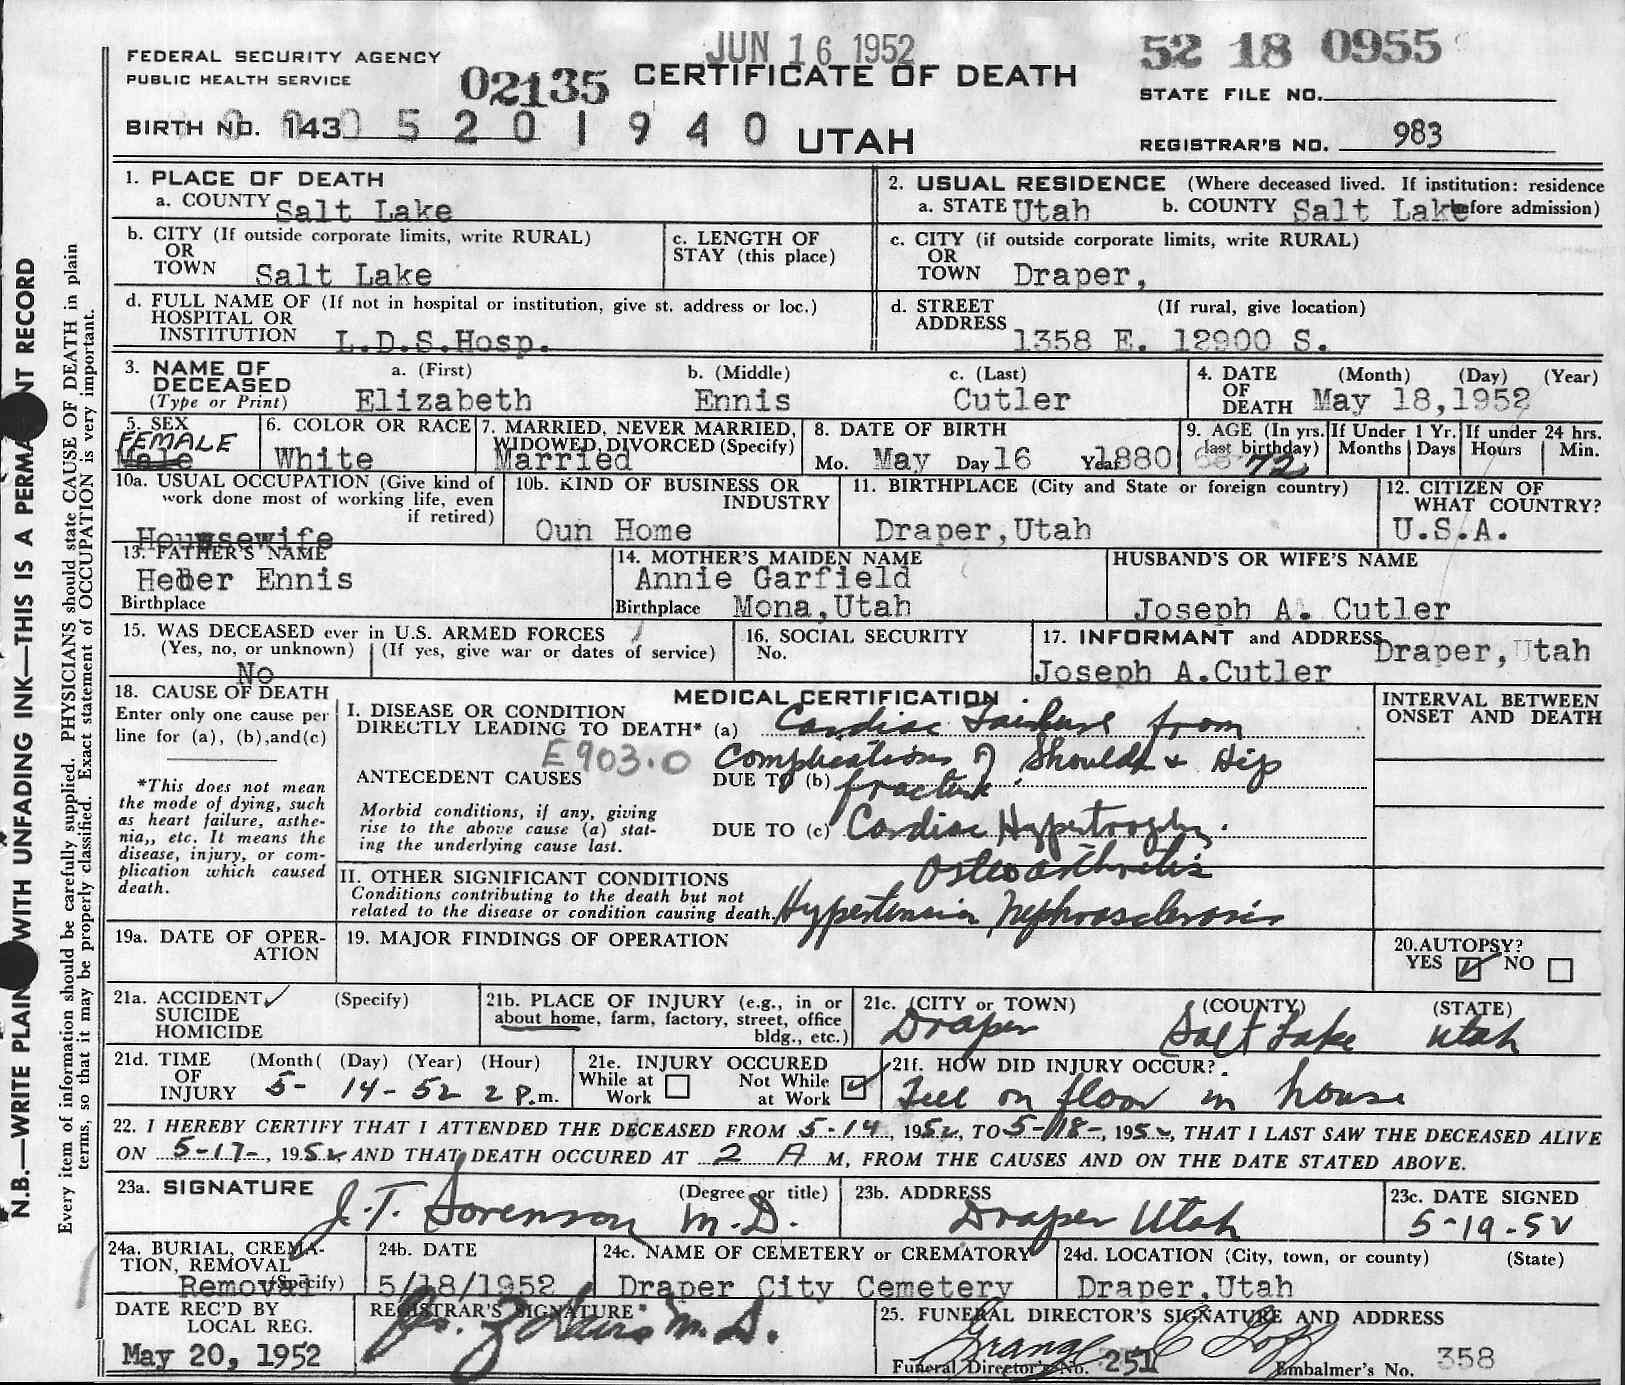 JUN 16 1952
52 18 0955
FEDERAL SECURITY AGENCY
PUBLIC HEALTH SERVICE
02135
CERTIFICATE OF DEATH
STATE FILE NO.
BIRTH NO. 143 5201940
UTAH
REGISTRAR'S NO. 983
N.B.—WRITE PLAINLY WITH UNFADING INK—THIS IS A PERMANENT RECORD
Every item of information should be carefully supplied. PHYSICIANS should state CAUSE OF DEATH in plain
terms, so that it may be properly classified. Exact statement of OCCUPATION is very important.
1. PLACE OF DEATH
a. COUNTY Salt Lake
2. USUAL RESIDENCE (Where deceased lived. If institution: residence
before admission)
a. STATE Utah b. COUNTY Salt Lake
b. CITY (If outside corporate limits, write RURAL)
OR
TOWN Salt Lake
c. LENGTH OF
STAY (this place)
c. CITY (if outside corporate limits, write RURAL)
OR
TOWN Draper,
d. FULL NAME OF (If not in hospital or institution, give st. address or loc.)
HOSPITAL OR
INSTITUTION L.D.S.Hosp.
d. STREET (If rural, give location)
ADDRESS 1358 E. 12900 S.
3. NAME OF
DECEASED
(Type or Print)
a. (First) b. (Middle) c. (Last)
Elizabeth Ennis Cutler
4. DATE (Month) (Day) (Year)
OF
DEATH May 18,1952
5. SEX
FEMALE
Male
6. COLOR OR RACE
White
7. MARRIED, NEVER MARRIED,
WIDOWED, DIVORCED (Specify)
Married
8. DATE OF BIRTH
Mo. May Day 16 Year 1880
9. AGE (In yrs.
last birthday)
72
If Under 1 Yr.
Months Days
If under 24 hrs.
Hours Min.
10a. USUAL OCCUPATION (Give kind of
work done most of working life, even
if retired)
Housewife
10b. KIND OF BUSINESS OR
INDUSTRY
Oun Home
11. BIRTHPLACE (City and State or foreign country)
Draper,Utah
12. CITIZEN OF
WHAT COUNTRY?
U.S.A.
13. FATHER'S NAME
Heber Ennis
Birthplace
14. MOTHER'S MAIDEN NAME
Annie Garfield
Birthplace Mona,Utah
HUSBAND'S OR WIFE'S NAME
Joseph A. Cutler
15. WAS DECEASED ever in U.S. ARMED FORCES
(Yes, no, or unknown) (If yes, give war or dates of service)
No
16. SOCIAL SECURITY
No.
17. INFORMANT and ADDRESS
Draper,Utah
Joseph A.Cutler
18. CAUSE OF DEATH
Enter only one cause per
line for (a), (b),and(c)
*This does not mean
the mode of dying, such
as heart failure, asthe-
nia,, etc. It means the
disease, injury, or com-
plication which caused
death.
MEDICAL CERTIFICATION
I. DISEASE OR CONDITION
DIRECTLY LEADING TO DEATH* (a) Cardiac Failure from
E903.0 Complications of Shoulder + Hip
ANTECEDENT CAUSES DUE TO (b) fracture
Morbid conditions, if any, giving
rise to the above cause (a) stat-
ing the underlying cause last.
DUE TO (c) Cardiac Hypertrophy.
Osteoarthritis
II. OTHER SIGNIFICANT CONDITIONS
Conditions contributing to the death but not
related to the disease or condition causing death.
Hypertension Nephrosclerosis
INTERVAL BETWEEN
ONSET AND DEATH
19a. DATE OF OPER-
ATION
19. MAJOR FINDINGS OF OPERATION
20.AUTOPSY?
YES ✓ NO
21a. ACCIDENT ✓ (Specify)
SUICIDE
HOMICIDE
21b. PLACE OF INJURY (e.g., in or
about home, farm, factory, street, office
bldg., etc.)
21c. (CITY or TOWN) (COUNTY) (STATE)
Draper Salt Lake Utah
21d. TIME (Month( (Day) (Year) (Hour)
OF
INJURY 5- 14-52 2 P.m.
21e. INJURY OCCURED
While at
Work
Not While
at Work ✓
21f. HOW DID INJURY OCCUR?
Fell on floor in house
22. I HEREBY CERTIFY THAT I ATTENDED THE DECEASED FROM 5-14, 1952, TO 5-18-, 1952, THAT I LAST SAW THE DECEASED ALIVE
ON 5-17-, 1952 AND THAT DEATH OCCURED AT 2 A M, FROM THE CAUSES AND ON THE DATE STATED ABOVE.
23a. SIGNATURE (Degree or title)
J.T. Sorenson M.D.
23b. ADDRESS
Draper Utah
23c. DATE SIGNED
5-19-52
24a. BURIAL, CREMA-
TION, REMOVAL
(Specify)
Removal
24b. DATE
5/18/1952
24c. NAME OF CEMETERY or CREMATORY
Draper City Cemetery
24d. LOCATION (City, town, or county) (State)
Draper,Utah
DATE REC'D BY
LOCAL REG.
May 20, 1952
REGISTRAR'S SIGNATURE
M.D.
25. FUNERAL DIRECTOR'S SIGNATURE AND ADDRESS
Funeral Director's No. 251
Embalmer's No. 358